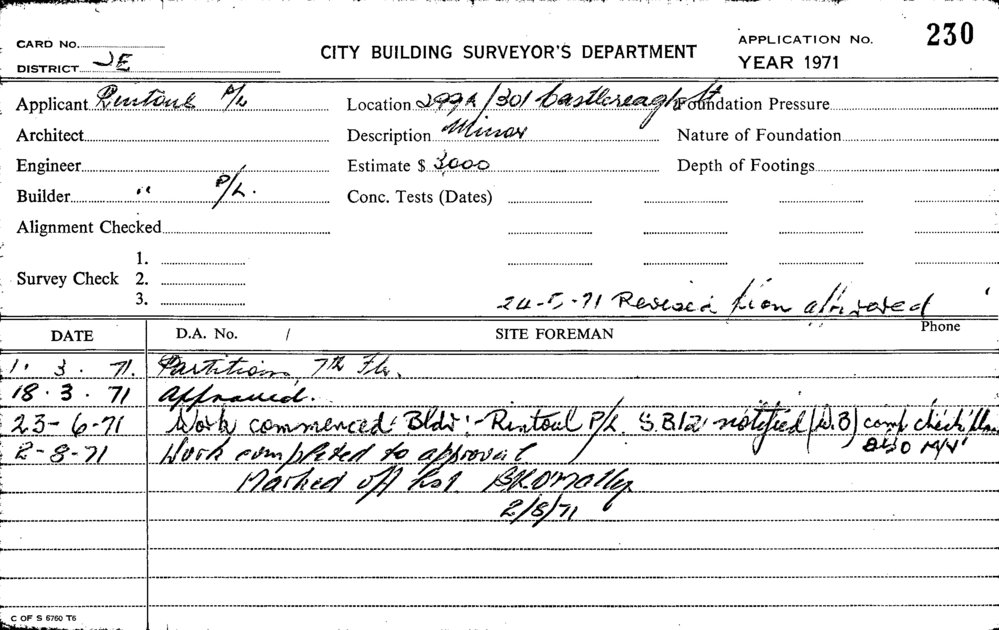 CARD No.
DISTRICT JE
CITY BUILDING SURVEYOR'S DEPARTMENT
APPLICATION No. 230
YEAR 1971
Applicant Rintoul P/L
Location 299A/301 Castlereagh St
Foundation Pressure
Architect
Description Minor
Nature of Foundation
Engineer
Estimate $ 3000
Depth of Footings
Builder " P/L.
Conc. Tests (Dates)
Alignment Checked
Survey Check
1.
2.
3.
24-5-71 Revised approved
DATE
D.A. No. /
SITE FOREMAN
Phone
1. 3. 71. Partitions 7th Flr.
18.3.71 Approved.
23-6-71 Work commenced Bldr:- Rintoul P/L notified (W.B) comp check
also
2-8-71 Work completed to approval
Marked off list BKO'Malley
2/8/71
C OF S 6760 T6